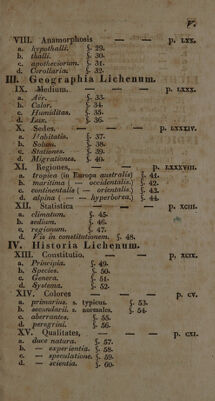 V.
VIII. Anamorphosis — — p. LXX.
a. hypothalli. §. 29.
b. thalli. §. 30.
c. apotheciorum. §. 31.
d. Corollaria. §. 32.
III. Geographia Lichenum.
IX. Medium. — — p. LXXX.
a. Aër. §. 33.
b. Calor. §. 34.
c. Humiditas. §. 35.
d. Lux. §. 36.
X. Sedes. — — — p. LXXXIV.
a. Habitatio. §. 37.
b. Solum. §. 38.
c. Stationes. §. 39.
d. Migrationes. §. 40.
XI. Regiones, — — p. LXXXVIII.
a. tropica (in Europa australis) §. 41.
b. maritima ( — occidentalis.) §. 42.
c. continentalis ( — orientalis.) §. 43.
d. alpina ( — — hyperborea.) §. 44.
XII. Statistica — — p. XCIII.
a. climatum. §. 45.
b. sedium. §. 46.
c. regionum. §. 47.
d. Vis in constitutionem. §. 48.
IV. Historia Lichenum.
XIII. Constitutio. — — p. XCIX.
a. Principia. §. 49.
b. Species. §. 50.
c. Genera. §. 51.
d. Systema. §. 52.
XIV. Colores — — — p. CV.
a. primarius. s. typicus. §. 53.
b. secundarii. s. normales. §. 54.
c. aberrantes. §. 55.
d. peregrini. §. 56.
XV. Qualitates, — — p. CXI.
a. duce natura. §. 57.
b. — experientia. §. 58.
c. — speculatione. §. 59.
d. — scientia. §. 60.